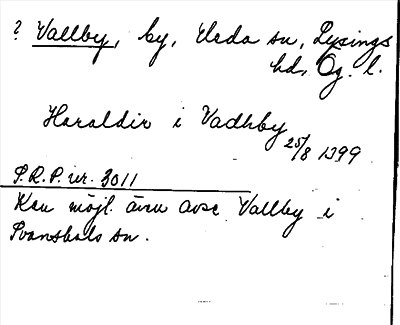 ? Vallby, by, Heda sn, Lysings
hd, Ög. l.
Haraldir i Vadhby 25/8 1399
S.R.P. nr. 3011
Kan möjl. även avse Vallby i
Svanshals sn.